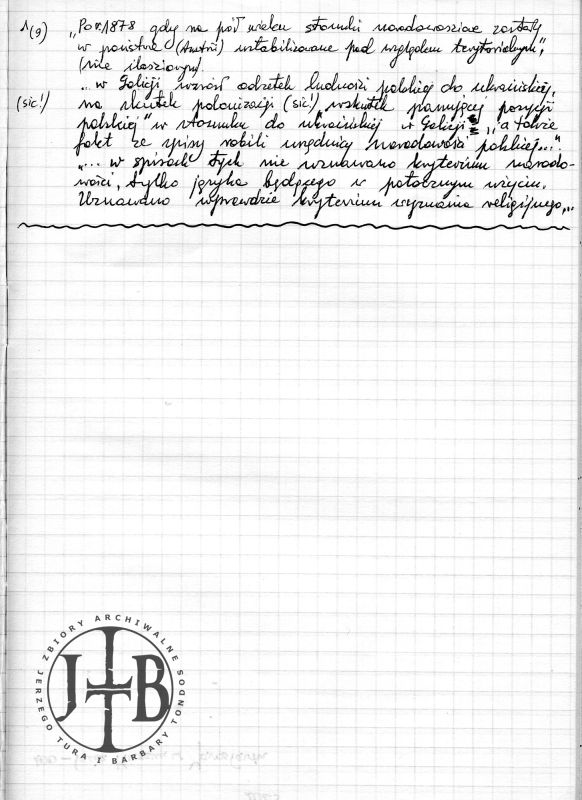 1(9) „Po r. 1878 gdy na pół wieku stosunki narodowościowe zostały
w państwie (Austrii) ustabilizowane pod względem terytorialnym",
(nie ilościowym).
"... w Galicji wzrósł odsetek ludności polskiej do ukraińskiej,
(sic!) na skutek polonizacji (sic!) wskutek panującej pozycji
polskiej" w stosunku do ukraińskiej w Galicji „a także
fakt że spisy robili urzędnicy narodowości polskiej..."
„... w spisach tych nie uznawano kryterium narodo-
wości, tylko języka będącego w potocznym użyciu.
Uznawano wprawdzie kryterium wyznania religijnego,...
ZBIORY ARCHIWALNE
JERZEGO TURA I BARBARY TONDOS
JTB